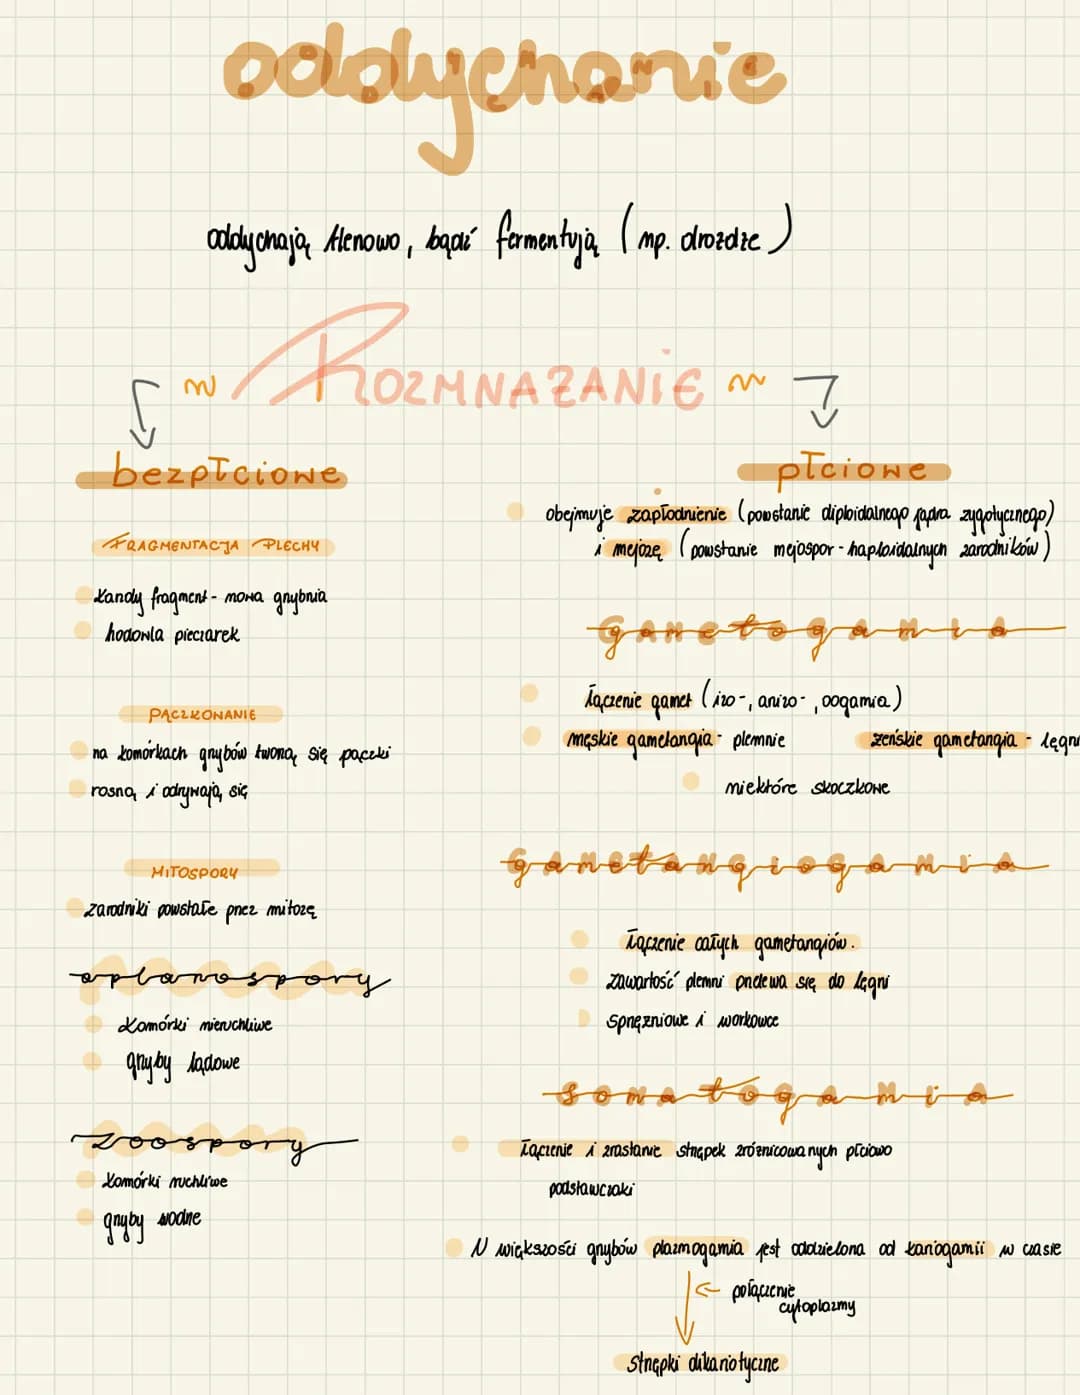 oddychanie
oddychają tlenowo, bądź fermentują (np. drożdże)
ROZMNAŻANIE
bezpłciowe
FRAGMENTACJA PLECHY
każdy fragment - nowa grzybnia
hodowla pieczarek
PĄCZKOWANIE
na komórkach grzybów tworzą się pączki
rosną i odrywają się
MITOSPORY
zarodniki powstałe przez mitozę
aplanospory
komórki nieruchliwe
grzyby lądowe
zoospory
komórki ruchliwe
grzyby wodne
płciowe
obejmuje zapłodnienie (powstanie diploidalnego jądra zygotycznego)
i mejozę (powstanie mejospor - haploidalnych zarodników)
gametogamia
łączenie gamet (izo-, anizo-, oogamia)
męskie gametangia - plemnie żeńskie gametangia - lęgni
niektóre skoczkowe
gametangiogamia
łączenie całych gametangiów.
zawartość plemni przelewa się do lęgni
sprzężniowe i workowce
somatogamia
łączenie i zrastanie strzępek zróżnicowanych płciowo
podstawczaki
W większości grzybów plazmogamia jest oddzielona od kariogamii w czasie
połączenie
cytoplazmy
strzępki dikariotyczne